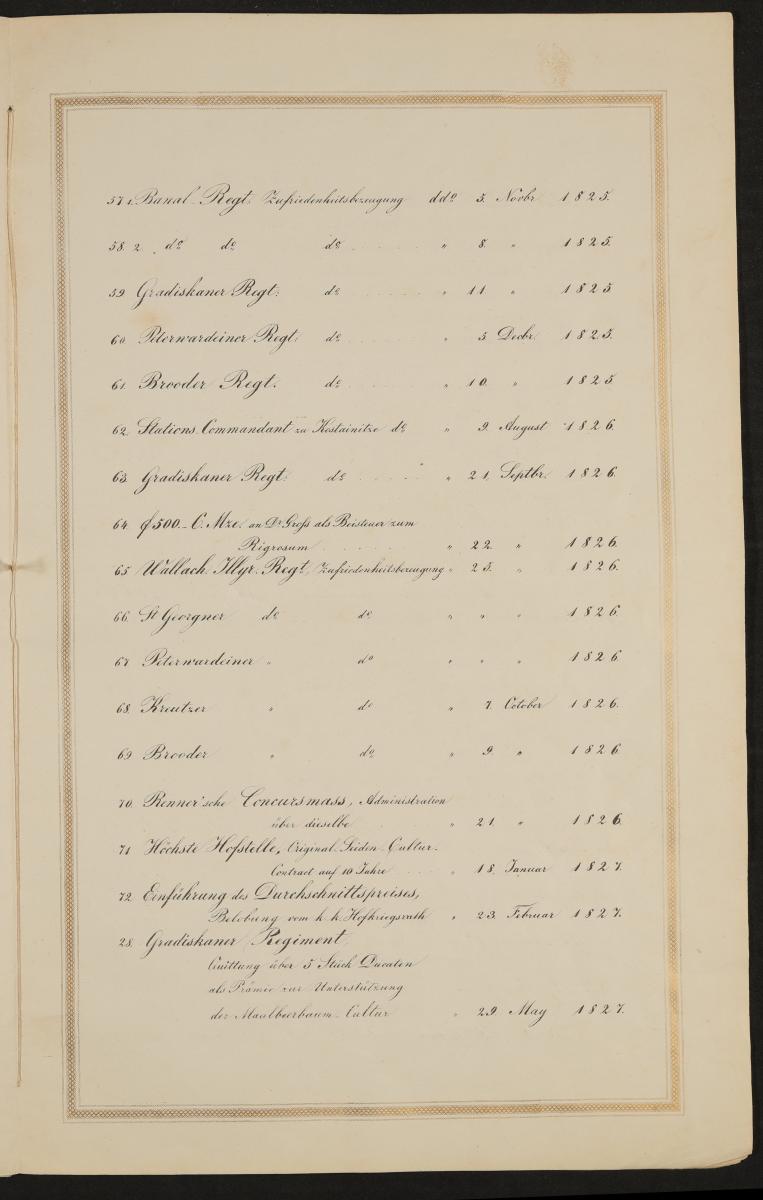 57 1. Banal Regt. Zufriedenheitsbezeugung ddo 5. Novbr 1825.
58. 2. do do do " 8. " 1825.
59. Gradiskaner Regt: do " 11 " 1825
60. Peterwardeiner Regt: do " 5 Decbr. 1825.
61. Brooder Regt. do " 10. " 1825
62. Stations Commandant zu Kostainitze do " 9. August 1826.
63. Gradiskaner Regt: do " 21. Septbr. 1826.
64. f 500.- C. Mze. an Dr. Groß als Beisteuer zum
Rigrosum " 22. " 1826.
65 Wallach. Illyr. Regt. Zufriedenheitsbezeugung " 25. " 1826.
66. St Georgner do do " " " 1826.
67. Peterwardeiner " do " " " 1826.
68. Kreutzer " do " 7. October 1826.
69. Brooder " do " 9. " 1826
70. Renner'sche Concursmass, Administration
über dieselbe " 21. " 1826.
71 Höchste Hofstelle, Original Seiden-Cultur-
Contract auf 10 Jahre " 18. Januar 1827.
72. Einführung des Durchschnittspreises,
Belobung vom k. k. Hofkriegsrath " 23. Februar 1827.
28. Gradiskaner Regiment,
Quittung über 5 Stück Ducaten
als Prämie zur Unterstützung
der Maulbeerbaum-Cultur " 29. May 1827.